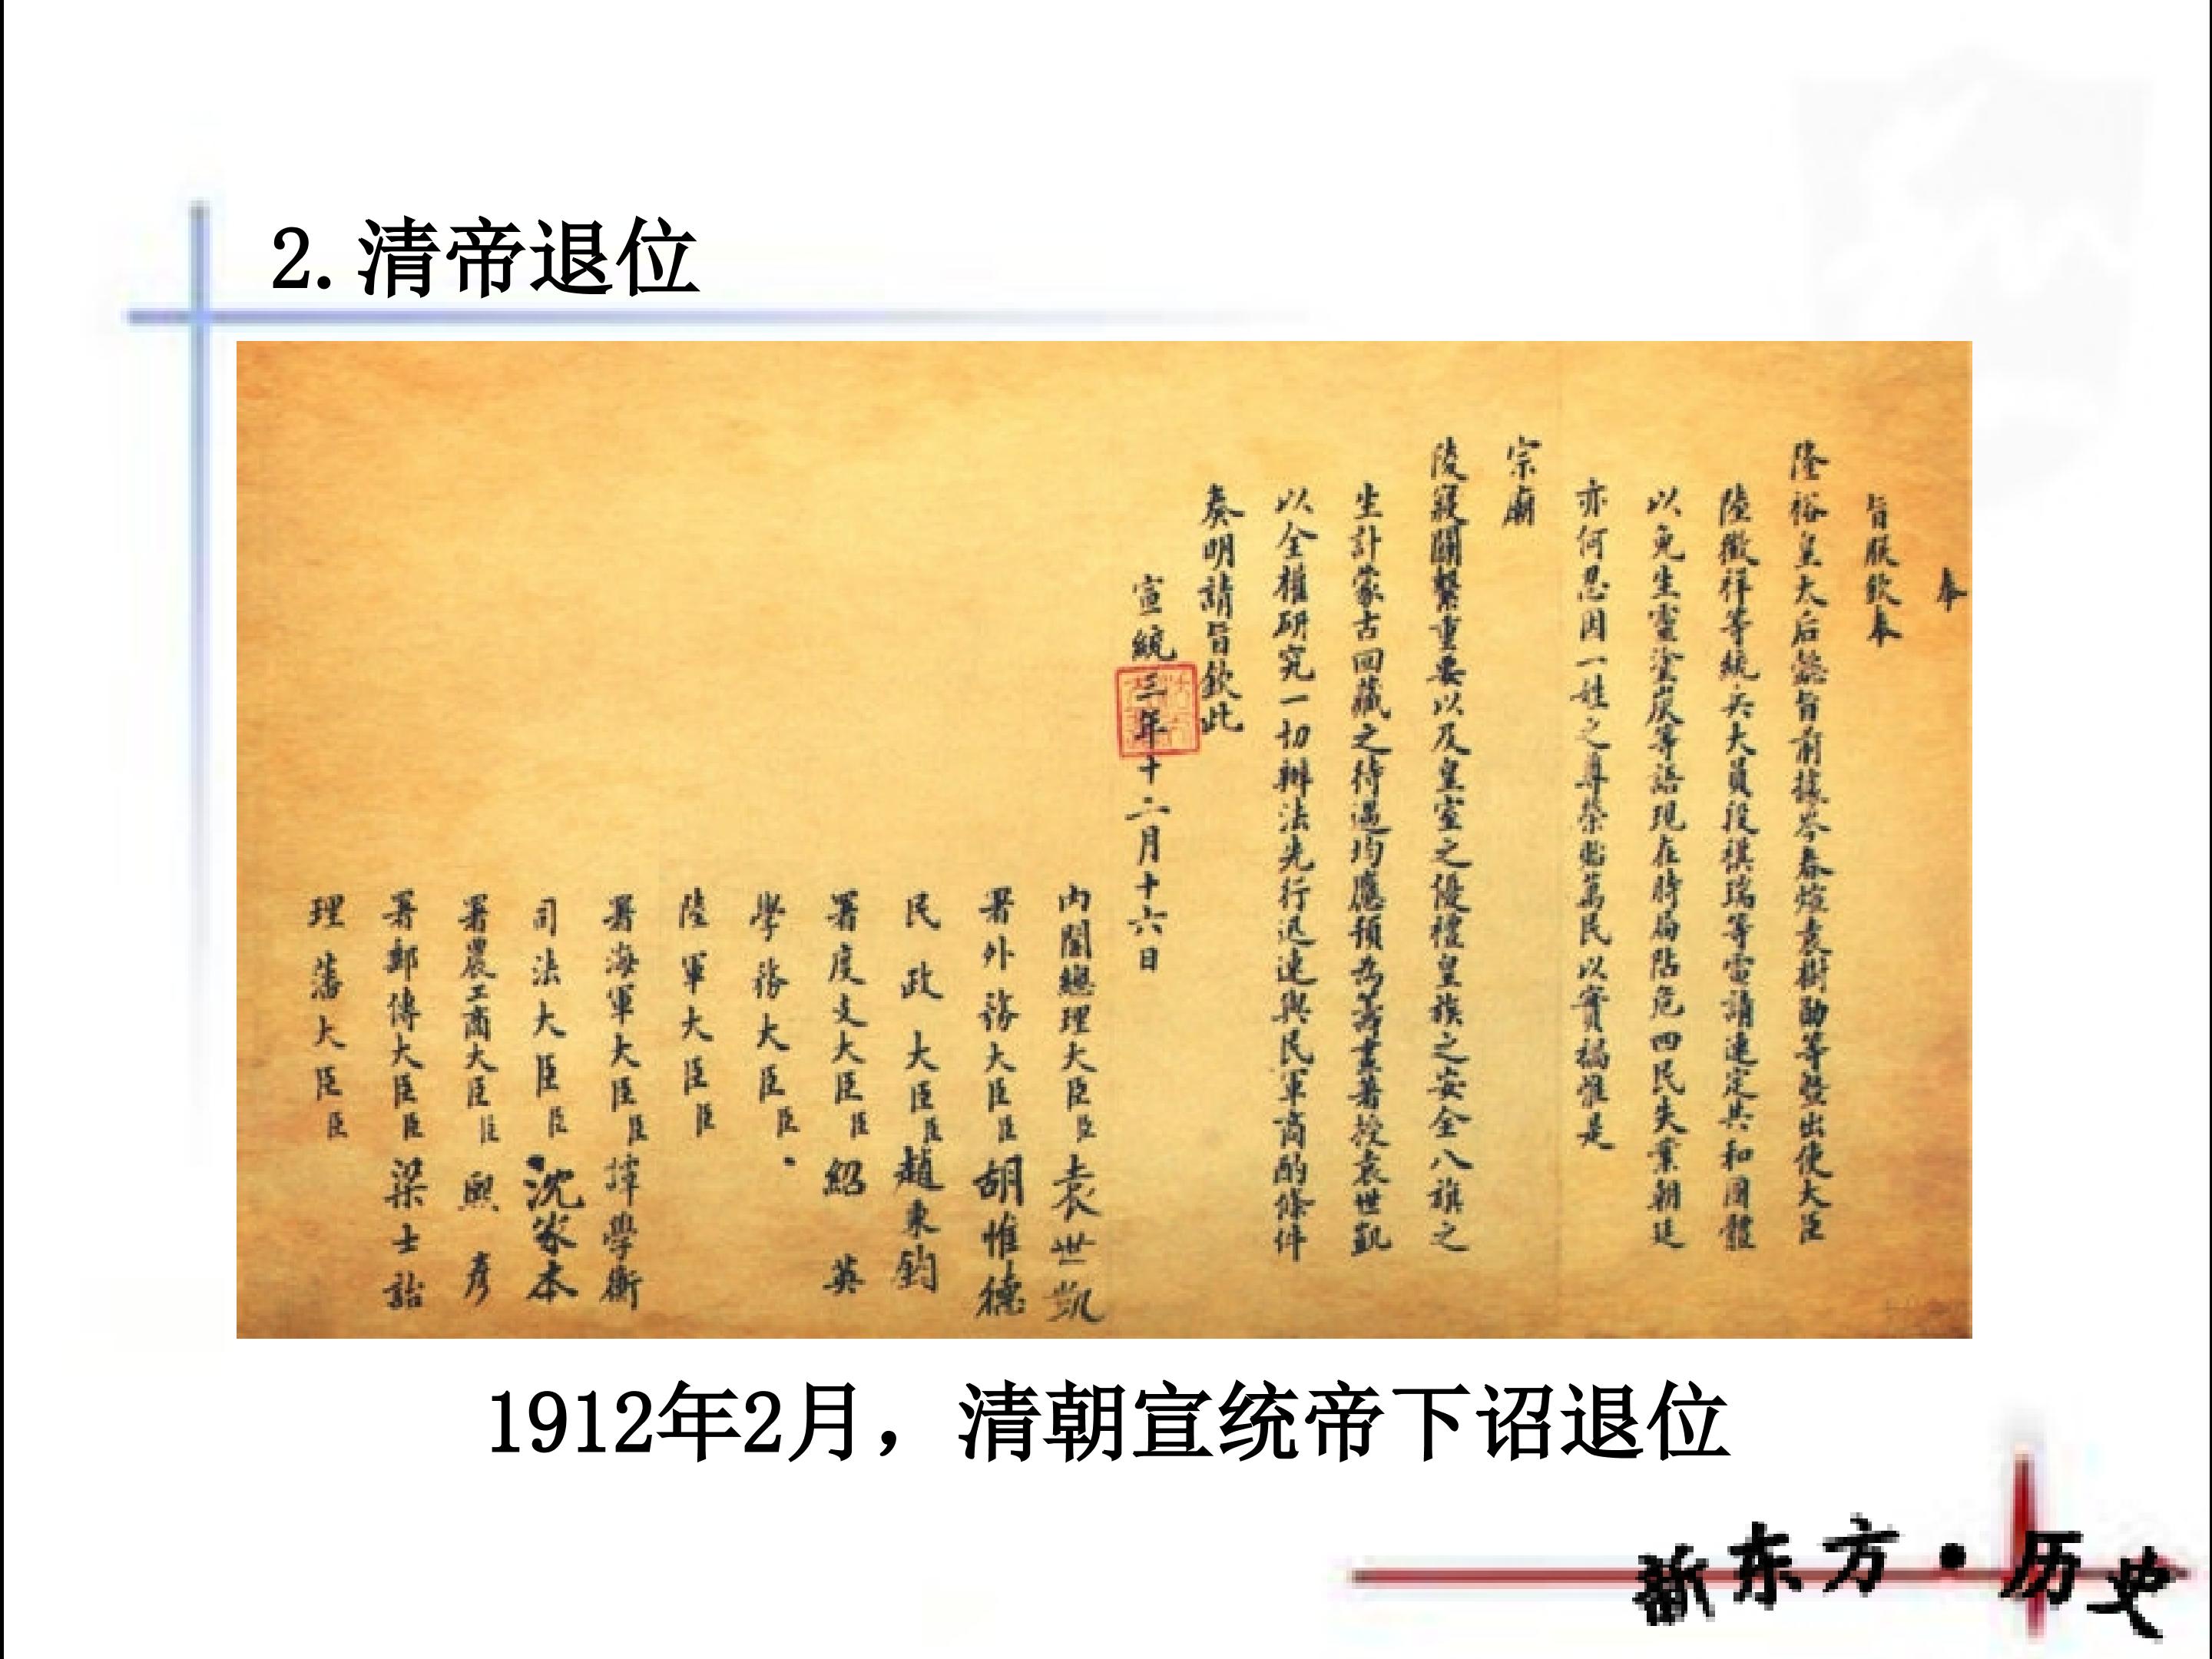 2.清帝退位
奉
旨朕欽奉
隆裕皇太后懿旨前據岑春煊袁樹勛等暨出使大臣
陸徵祥等統兵大員段祺瑞等電請速定共和國體
以免生靈塗炭等語現在時局阽危四民失業朝廷
亦何忍因一姓之尊榮貽萬民以實禍惟是
宗廟
陵寢關繫重要以及皇室之優禮皇族之安全八旗之
生計蒙古回藏之待遇均應預為籌畫著授袁世凱
以全權研究一切辦法先行迅速與民軍商酌條件
奏明請旨欽此
宣統三年十二月十六日
內閣總理大臣臣袁世凱
署外務大臣臣胡惟德
民政大臣臣趙秉鈞
署度支大臣臣紹英
學務大臣臣
陸軍大臣臣
署海軍大臣臣譚學衡
司法大臣臣沈家本
署農工商大臣臣熙彥
署郵傳大臣臣梁士詒
理藩大臣臣
1912年2月，清朝宣统帝下诏退位
新东方·历史